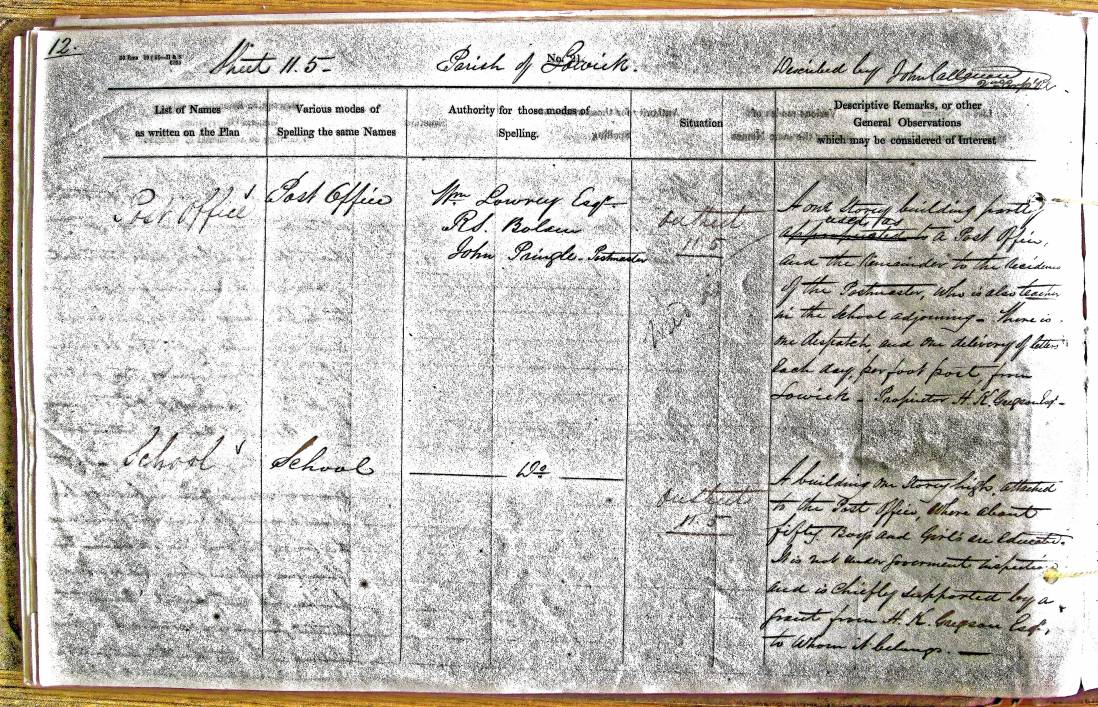 12.
Sheet 11.5-
Parish of Lowick.
No. 21
Described by John
List of Names
as written on the Plan
Various modes of
Spelling the same Names
Authority for those modes of
Spelling.
Situation
Descriptive Remarks, or other
General Observations
which may be considered of Interest
Post Office
Post Office
Wm Lowrey Esqr
R.S. Bolam
John Pringle - Postmaster
on theet
11.5
A one Storey building partly
used as
appropriated to a Post Office,
and the Remainder to the Residence
of the Postmaster, who is also teacher
in the School adjoining - There is
one despatch, and one delivery of letters
each day, per foot post, from
Lowick - Proprietor H. K. Gregson Esqr -
School
School
Do
11.5
A building one Storey high, attached
to the Post Office, Where about
fifty Boys and Girls are educated.
It is not under Goverment inspection
and is Chiefly supported by a
grant from H. K. Gregson Esqr,
to whom it belongs. -